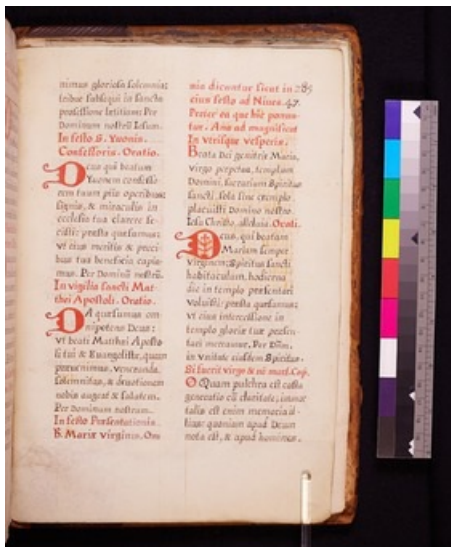 nimus gloriosa solemnia:
tribue subsequi in sancta
professione letitiam: Per
Dominum nostrū Iesum.
In festo S. Yuonis.
Confessoris. Oratio.
Deus qui beatum
Yuonem confesso-
rem tuum piis operibus:
signis, & miraculis in
ecclesia tua clarere fe-
cisti: presta quesumus:
vt eius meritis & preci
bus tua beneficia capia-
mus. Per Dominū nostrū.
In vigilia sancti Mat-
thei Apostoli. Oratio.
DA quesumus om
nipotens Deus:
vt beati Matthei Aposto
li tui & Euangelistæ, quam
preuenimus, veneranda
solemnitas, & deuotionem
nobis augeat & salutem.
Per Dominum nostrum.
In festo Presentationis
B. Mariæ virginis, Om
nia dicuntur sicut in 285
eius festo ad Niues. 47.
Preter ea que hic ponun-
tur. Anā ad magnificat
In vtrisque vesperis.
Beata Dei genitrix Maria,
virgo perpetua, templum
Domini, sacrarium Spiritus
sancti, sola sine exemplo
placuisti Domino nostro
Iesu Christo, alleluia. Orati.
Deus, qui beatam
Mariam semper
virginem, Spiritus sancti
habitaculum, hodierna
die in templo presentari
voluisti: presta quesumus:
vt eius intercessione in
templo gloriæ tuæ presen-
tari mereamur. Per Dñm.
in vnitate eiusdem Spiritus.
Si fuerit virgo & nō mart. Cap.
O Quam pulchra est casta
generatio cū claritate: immor
talis est enim memoria il-
lius: quoniam apud Deum
nota est, & apud homines.